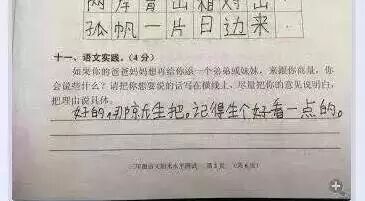 两岸青山相对出
孤帆一片日边来
十一、语文实践。(4分)
如果你的爸爸妈妈想再给你添一个弟弟或妹妹,来跟你商量,你
会说些什么?请把你想要说的话写在横线上,尽量把你的意见说明白,
把理由说具体。
好的,那就生把。记得生个好看一点的。
年级语文期末水平测试 第5页 (共6页)